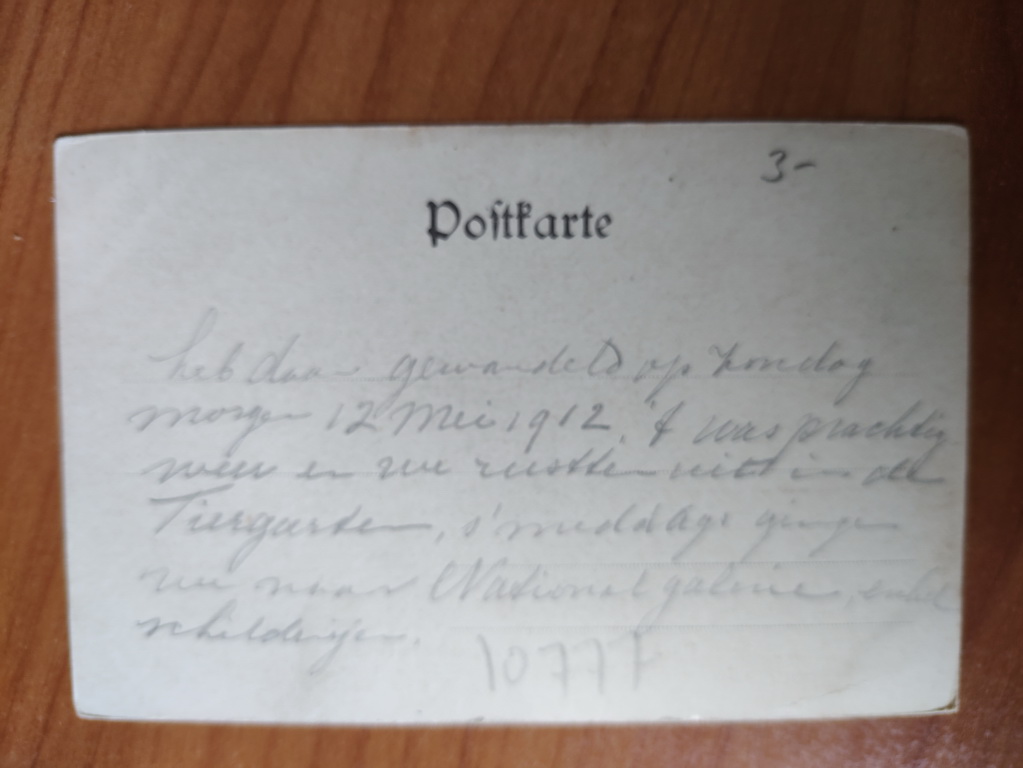 3-
Poſtkarte
heb daar gewandeld op zondag
morgen 12 Mei 1912, 't was prachtig
weer en we rustten uit in de
Tiergarten, s'middags gingen
we naar National galerie, enkel
schilderijen.
1077F